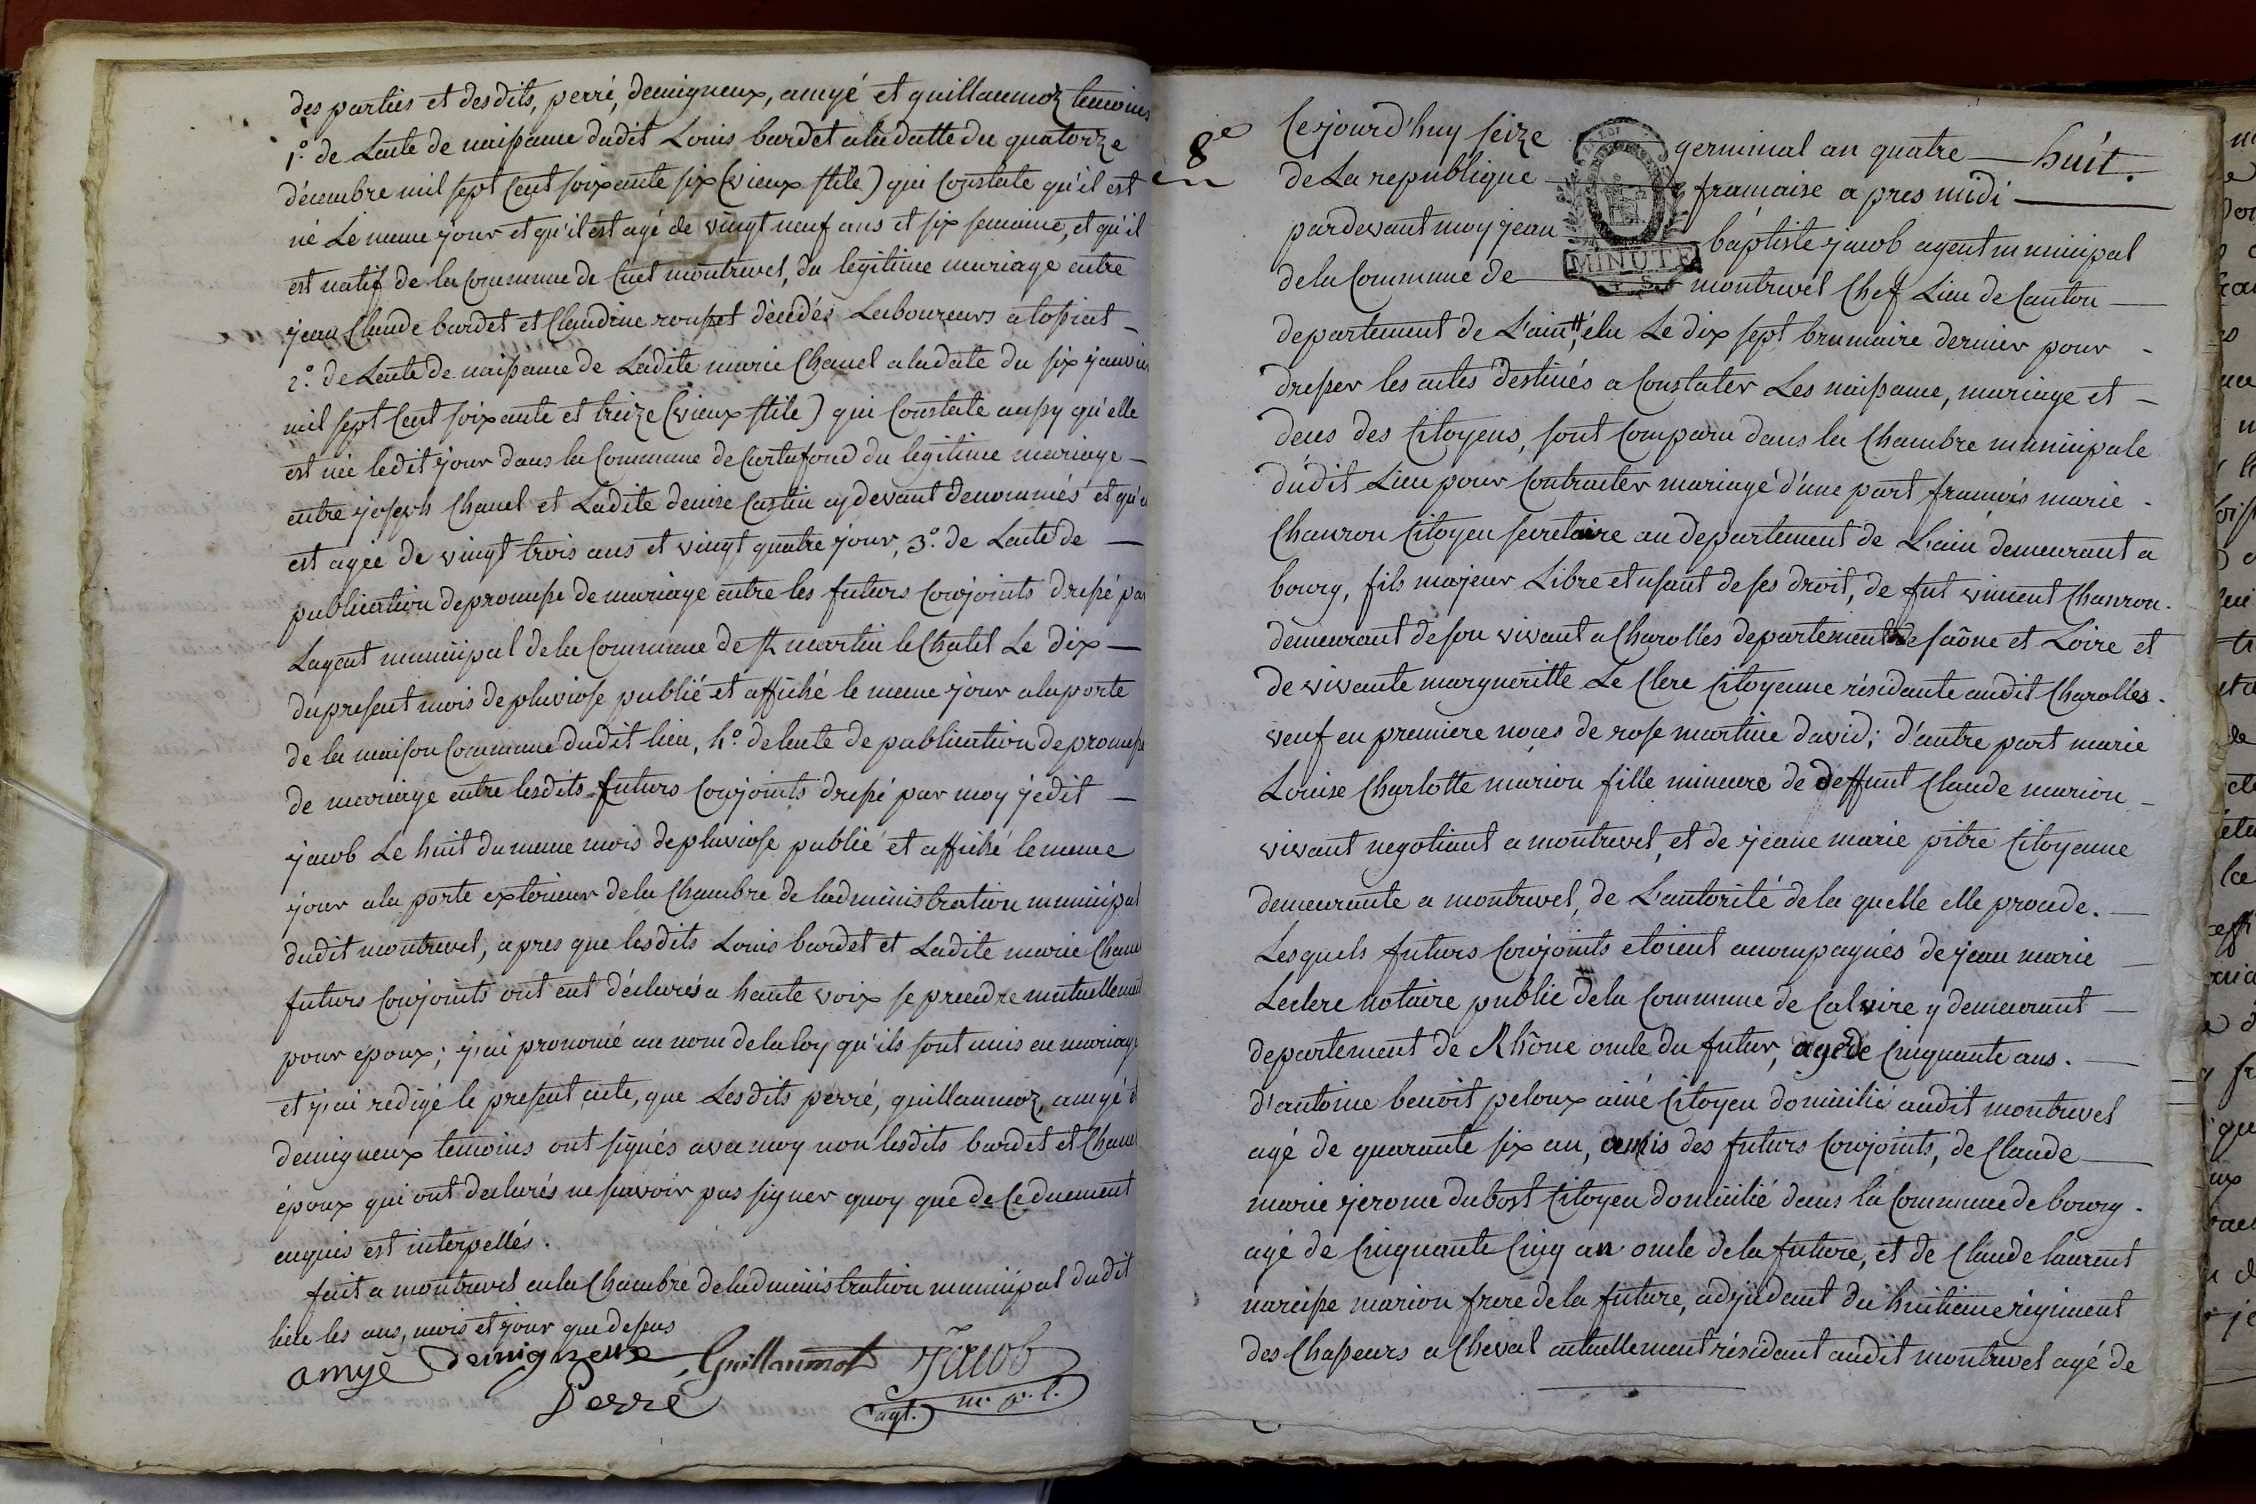 des parties et desdits, perré, demigneux, amyé et guillaumoz temoins
1.° de Lacte de naissance dudit Louis bardet a la datte du quatorze
décembre mil sept Cent soixante six (vieux stile) qui Constate qu'il est
né Le meme jour et qu'il est agé de vingt neuf ans et six semaine, et qu'il
est natif de la Commune de Cuet montrevel, du legitime mariage entre
jean Claude bardet et Claudine rousset décédés Laboureurs a
2.° de Lacte de naissance de Ladite marie Chanel a la date du six janvier
mil sept Cent soixante et treize (vieux stile) qui Constate aussy qu'elle
est née ledit jour dans la Commune de Curtafond du legitime mariage
entre joseph Chanel et Ladite denise Castin cy devant denommés et qu'
est agée de vingt trois ans et vingt quatre jour, 3.° de Lacte de
publication de promesse de mariage entre les futurs Conjoints dressé par
Lagent municipal de la Commune de St martin le Chatel Le dix
du present mois de pluviose publié et affiché le meme jour a la porte
de la maison Commune dudit lieu, 4.° de lacte de publication de promesse
de mariage entre lesdits futurs Conjoints dressé par moy jedit
jacob Le huit du meme mois de pluviose publié et affiché le meme
jour a la porte exterieur de la Chambre de ladministration municipal
dudit montrevel, apres que lesdits Louis bardet et Ladite marie Chanel
futurs Conjoints ont eut déclarés a haute voix se prendre mutuellement
pour epoux; j'ai prononcé au nom de la loy qu'ils sont unis en mariage
et j'ai redigé le present acte, que Lesdits perré, guillaumoz, amyé et
demigneux temoins ont signés avec moy non lesdits bardet et Chanel
époux qui ont declarés ne savoir pas signer quoy que de Ce duement
enquis est interpellés.
fait a montrevel en la Chambre de ladministration municipal dudit
lieu les ans, mois et jour que dessus
amyé Demigneux Guillaumot Jacob
Perré agt. m.p.l.
8e
Cejourd'huy seize germinal an quatre huit.
de La republique francaise a pres midi
pardevant moy jean baptiste jacob agent municipal
de la Commune de montrevel Chef Lieu de Canton
MINUTE
departement de L'ain, élu Le dix sept brumaire dernier pour
dresser les actes destinés a Constater Les naissance, mariage et
deces des Citoyens, sont Comparu dans la Chambre municipale
dudit Lieu pour Contracter mariage d'une part francois marie
Chanron Citoyen secretaire au departement de L'ain demeurant a
bourg, fils majeur Libre et usant de ses droit, de fut vincent Chanron
demeurant de son vivant a Charolles departement de saône et Loire et
de vivante margueritte Le Clerc Citoyenne résidante audit Charolles
veuf en premiere noces de rose martine david; d'autre part marie
Louise Charlotte marion fille mineure de deffunt Claude marion
vivant negotiant a montrevel, et de jeane marie pitre Citoyenne
demeurante a montrevel, de L'autorité de la quelle elle procede.
Lesquels futurs Conjoints etoient acompagnés de jean marie
Leclerc notaire public de la Commune de Calvire y demeurant
departement de Rhône oncle du futur, agé de Cinquante ans.
d'antoine benoit peloux ainé Citoyen domicilié audit montrevel
agé de quarante six an, amis des futurs Conjoints, de Claude
marie jerome dubost Citoyen domicilié dans la Commune de bourg
agé de Cinquante Cinq an oncle de la future, et de Claude laurent
narcisse marion frere de la future, adjudant du huitieme régiment
des Chasseurs a Cheval actuellement résidant audit montrevel agé de